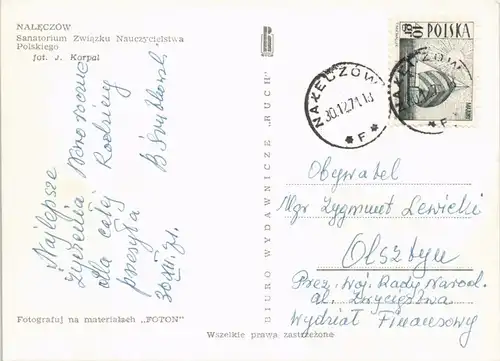 NAŁĘCZÓW
Sanatorium Związku Nauczycielstwa
Polskiego
fot. J. Korpal
Najlepsze
życzenia Noworoczne
dla całej Rodziny
przesyła
30.XII.71.
Fotografuj na materiałach „FOTON"
BIURO WYDAWNICZE „RUCH"
Wszelkie prawa zastrzeżone
40 gr
POLSKA
NAŁĘCZÓW
30.12.71.18
* F *
Obywatel
Mgr Zygmunt Lewicki
Olsztyn
Prez. Woj. Rady Narod.
al. Zwycięstwa
Wydział Finansowy